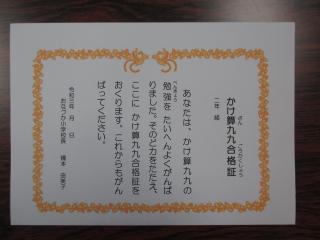 かけ算九九合格証
二年 組
あなたは、かけ算九九の
勉強を たいへんよくがんば
りました。そのど力をたたえ、
ここに かけ算九九合格証を
おくります。これからもがん
ばってください。
令和三年 月 日
おなづか小学校長 橋本 由美子